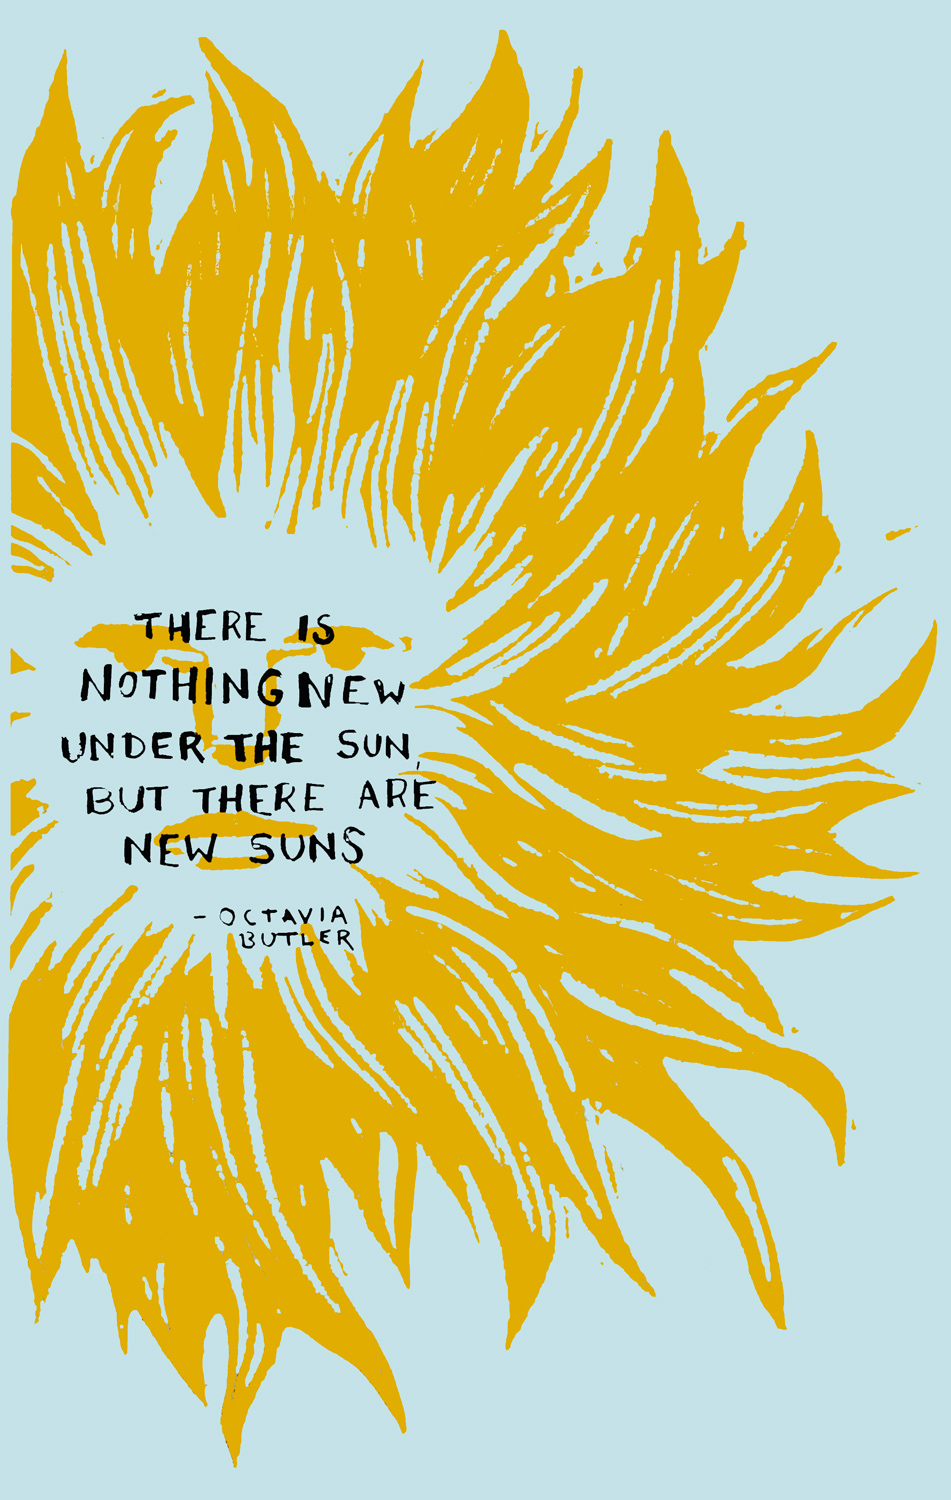 THERE IS
NOTHING NEW
UNDER THE SUN,
BUT THERE ARE
NEW SUNS
- OCTAVIA
BUTLER